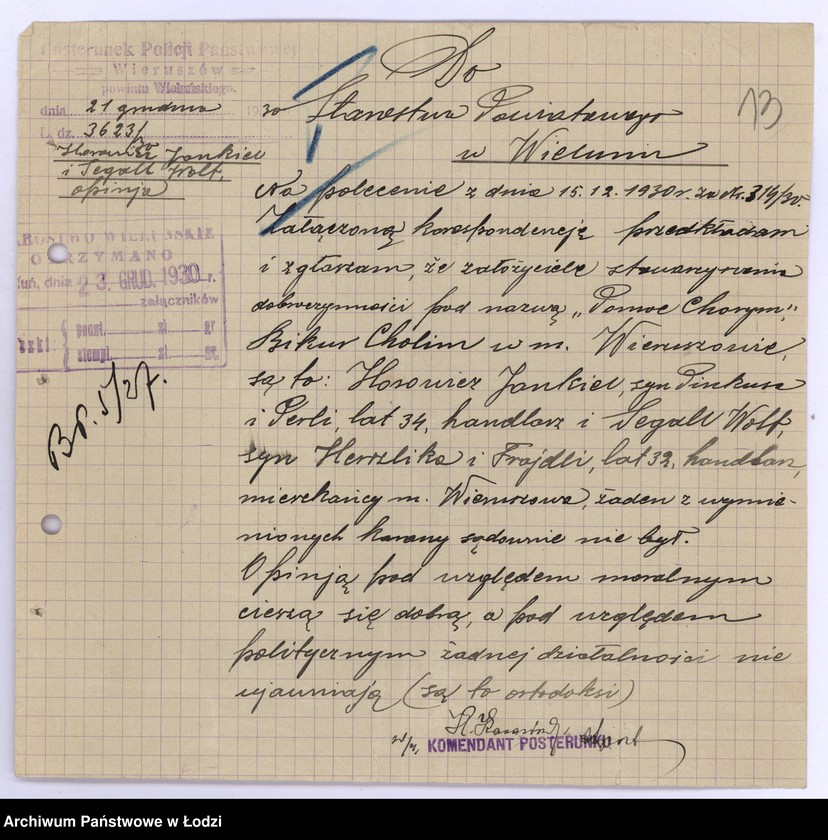 Posterunek Policji Państwowej
Wieruszów
powiatu Wieluńskiego.
dnia 21 grudnia 1930
L. dz. 3623/30
Horowicz Jankiel
i Segall Wolf,
opinja
Do
Starostwa Powiatowego
w Wieluniu
13
Na polecenie z dnia 15.12.1930r. za Nr.
Załączoną korespondencję przedkładam
i zgłaszam, że założyciele stowarzyszenia
dobroczynności pod nazwą „Pomoc Chorym",
Bikur Cholim w m. Wieruszowie,
są to: Horowicz Jankiel, syn Pinkusa
i Perli, lat 34, handlarz i Segall Wolf,
syn Herszlika i Frajdli, lat 32, handlarz,
mieszkańcy m. Wieruszowa, żaden z wymie-
nionych karany sądownie nie był.
Opinją pod względem moralnym
cieszą się dobrą, a pod względem
politycznym żadnej działalności nie
ujawniają (są to ortodoksi)
KOMENDANT POSTERUNKU
STAROSTWO WIELUŃSKIE
OTRZYMANO
dnia 23. GRUD. 1930 r.
załączników
poczt. zł. gr
stempl. zł. gr.
BP. 5/27.
Archiwum Państwowe w Łodzi